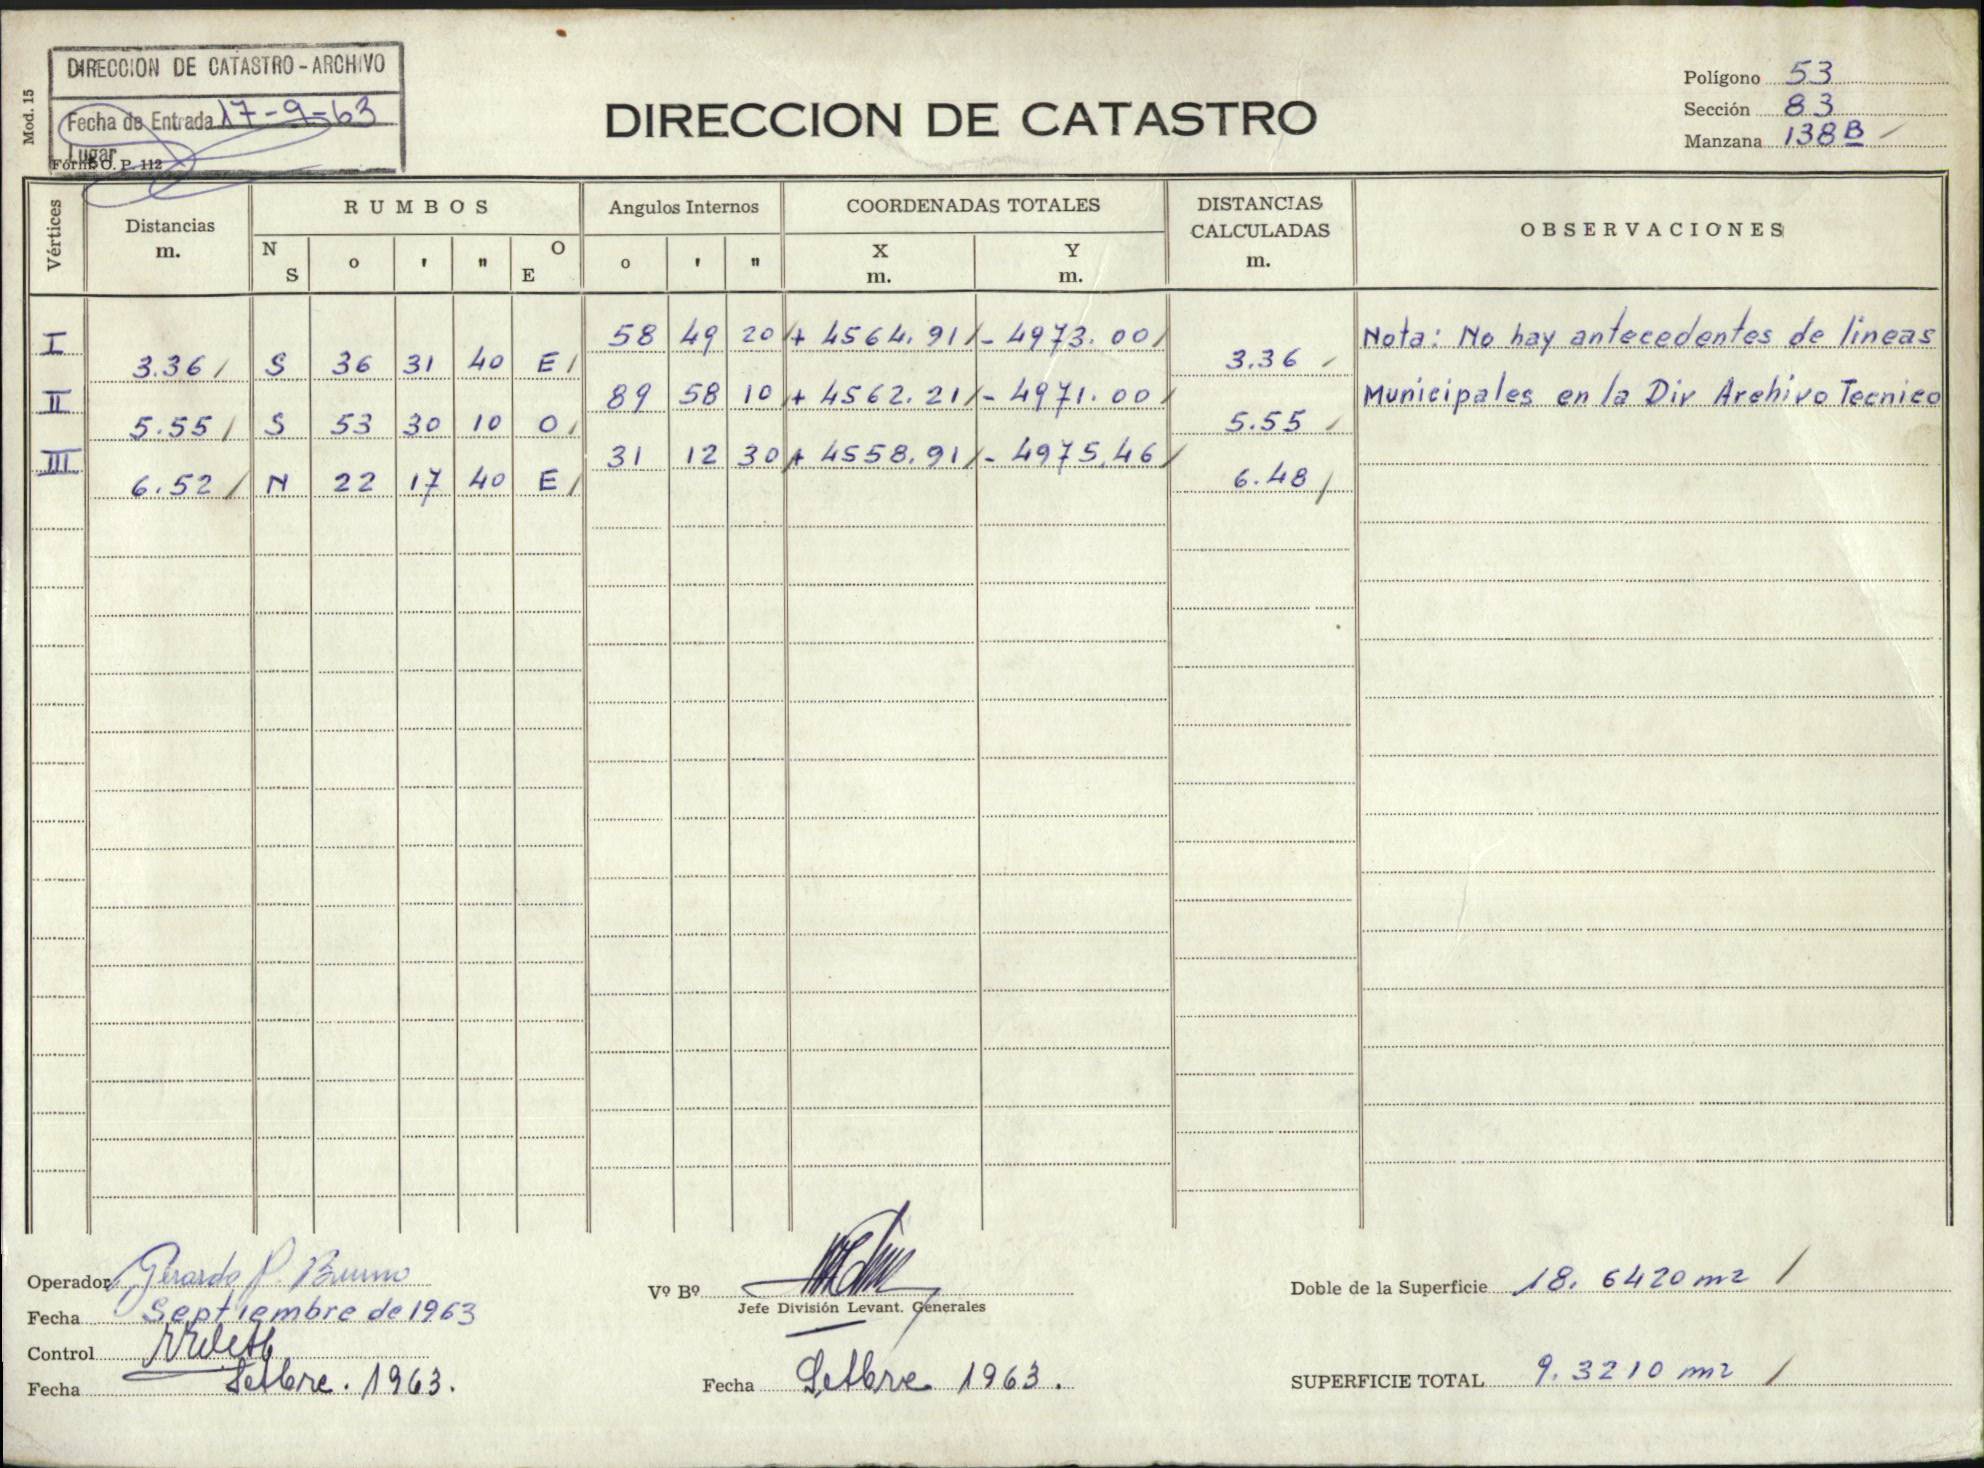 DIRECCION DE CATASTRO - ARCHIVO
Fecha de Entrada 17-9-63
Lugar
Mod. 15
Form. O. P. 112
DIRECCION DE CATASTRO
Polígono 53
Sección 83
Manzana 138 B
Vértices
Distancias m.
RUMBOS
N S
o ' "
O E
Angulos Internos
o ' "
COORDENADAS TOTALES
X m.
Y m.
DISTANCIAS CALCULADAS m.
OBSERVACIONES
I 58 49 20 + 4564.91 - 4973.00 Nota: No hay antecedentes de lineas
3.36 S 36 31 40 E 3.36
II 89 58 10 + 4562.21 - 4971.00 Municipales en la Div Archivo Tecnico
5.55 S 53 30 10 O 5.55
III 31 12 30 + 4558.91 - 4975.46
6.52 N 22 17 40 E 6.48
Operador Gerardo P. Bruno
Fecha Septiembre de 1963
Control
Fecha Setbre. 1963.
Vº Bº
Jefe División Levant. Generales
Fecha Setbre 1963.
Doble de la Superficie 18.6420 m2
SUPERFICIE TOTAL 9.3210 m2